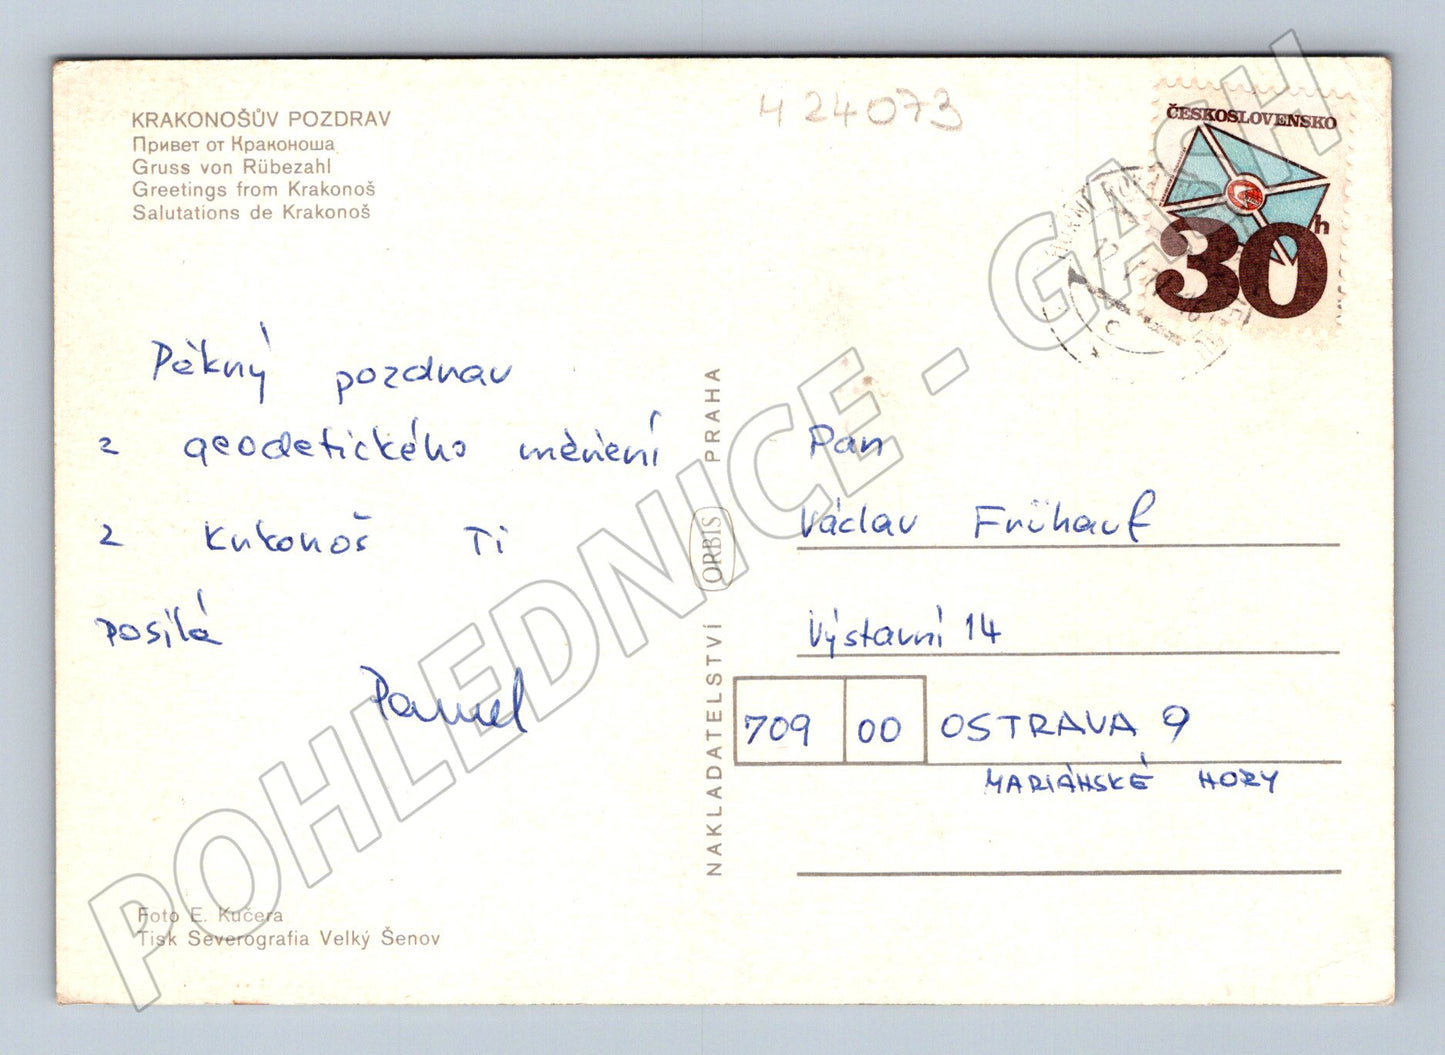 KRAKONOŠŮV POZDRAV
Привет от Краконоша
Gruss von Rübezahl
Greetings from Krakonoš
Salutations de Krakonoš
424073
ČESKOSLOVENSKO
30h
Pěkný pozdrav
z geodetického měření
z Krkonoš Ti
posílá
Pavel
Foto E. Kučera
Tisk Severografia Velký Šenov
NAKLADATELSTVÍ ORBIS PRAHA
Pan
Václav Frühauf
Výstavní 14
709 00 OSTRAVA 9
MARIÁNSKÉ HORY
POHLEDNICE - GASH